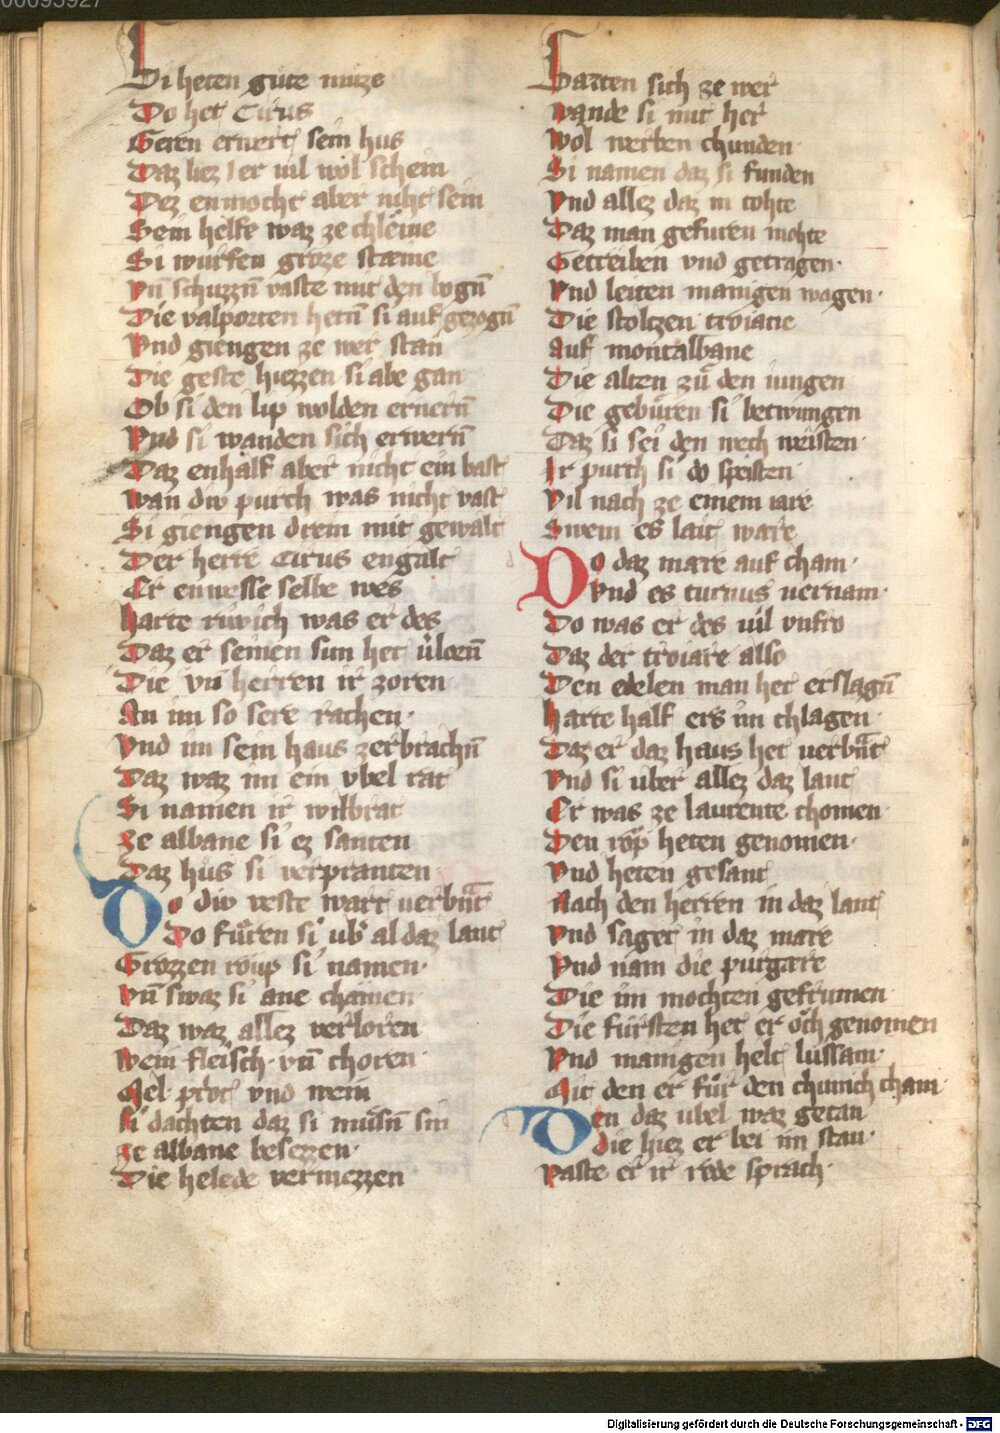 00095927
Di heten gute nutze
Do het Cirus
Geren ernert sein hus
Daz liez er uil wol schein
Dez enmocht aber niht sein
Sein helfe waz ze chleine
Si wurfen groze staeine
Vñ schuzzñ vaste mit den bogñ
Die valporten hetñ si auf gezogñ
Vnd giengen ze wer stan
Die geste hiezzen si abe gan
Ob si den lip wolden ernerñ
Vnd si wanden sich erwerñ
Daz enhalf aber nicht ein bast
Wan div purch was nicht vast
Si giengen drein mit gewalt
Der herre Cirus engalt
Er enwesse selbe wes
Harte ruwich was er des
Daz er seinen sun het
Die vñ herren ir zoren
An im so sere rachen·
Vnd im sein haus zerbrachñ
Daz waz im ein vbel rat
Si namen ir wilbrat
Ze albane si ez santen
Daz hus si verpranten
Do div veste wart uerbrāt
Do fuͦren si ub' al daz lant
Grozzen roup si namen·
Vñ swaz si ane chamen
Daz waz allez verloren
Wein fleisch· vñ choren·
Mel· prot vnd wein
Si dachten daz si musñ sin
Ze albane besezzen·
Die helede vermezzen
Satzten sich ze wer
Wande si mit her
Wol werben chunden·
Si namen daz si funden
Vnd allez daz in tohte
Daz man gefuren mohte
Getreiben vnd getragen·
Vnd leiten manigen wagen·
Die stoltzen troiane
Auf montalbane
Die alten zuͦ den iungen
Die gebuͦren si betwungen
Daz si sei den wech weisten·
Ir purch si do speisten·
Vil nach ze einem iare
Swem es lait ware
Do daz mare auf cham·
Vnd es turnus uernam·
Do was er des uil vnfro
Daz der troiare also
Den edelen man het erslagñ
Harte half ers im chlagen·
Daz er daz haus het uerbrāt
Vnd si uber allez daz lant
Er was ze laurente chomen·
Den rop heten genomen·
Vnd heten gesant
Nach den herren in daz lant
Vnd saget in daz mare
Vnd nam die purgare
Die im mochten gefrumen
Die fursten het er och genomen
Vnd manigen helt lussam·
Mit den er fuͦr den chunich cham·
Den daz ubel waz getan
Die hiez er bei im stan·
Vaste er ir rede sprach·
Digitalisierung gefördert durch die Deutsche Forschungsgemeinschaft - DFG